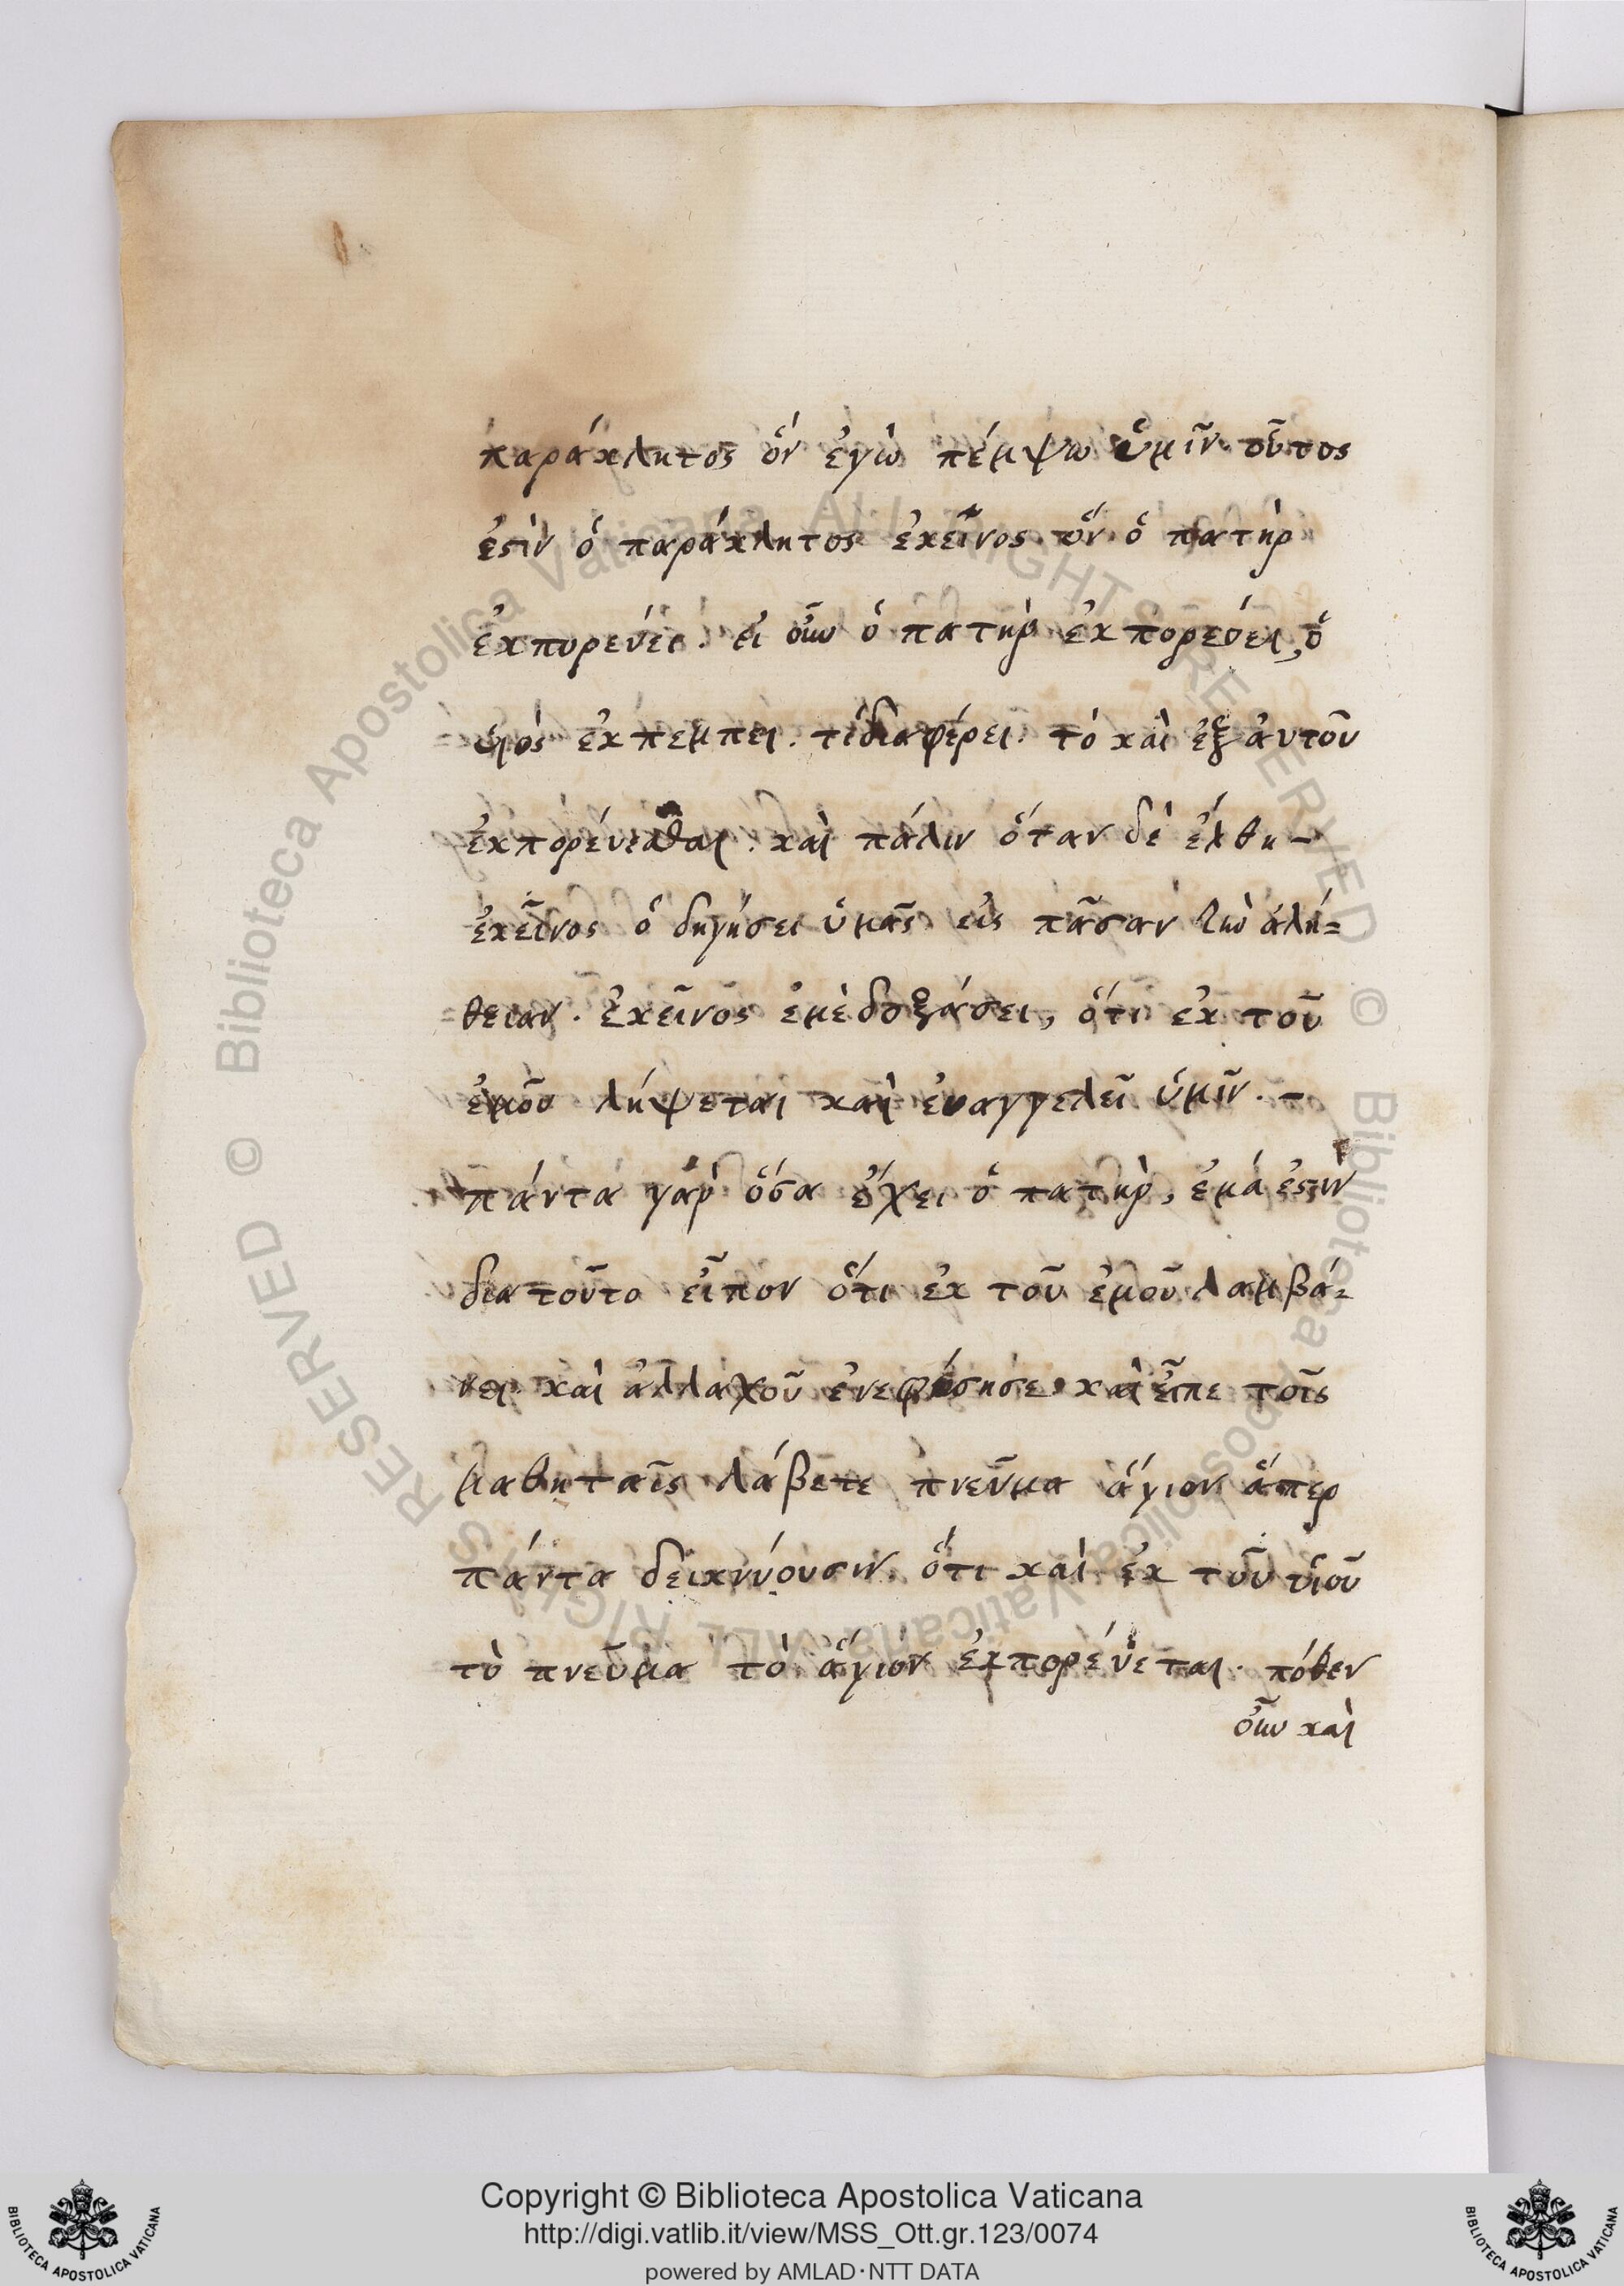 παράκλητος ὅν ἐγὼ πέμψω ὑμῖν οὗτος
ἐστὶν ὁ παράκλητος ἐκεῖνος ὅν ὁ πατὴρ
ἐκπορεύει. εἰ οὖν ὁ πατὴρ ἐκπορεύει, ὁ
υἱὸς ἐκπέμπει. τί διαφέρει τὸ καὶ ἐξ αὐτοῦ
ἐκπορεύεσθαι. καὶ πάλιν ὅταν δὲ ἔλθη –
ἐκεῖνος ὁδηγήσει ὑμᾶς εἰς πᾶσαν τὴν ἀλή=
θειαν. ἐκεῖνος ἐμὲ δοξάσει, ὅτι ἐκ τοῦ
ἐμοῦ λήψεται καὶ ἀναγγελεῖ ὑμῖν. –
πάντα γὰρ ὅσα ἔχει ὁ πατὴρ, ἐμά ἐστιν
διατοῦτο εἶπον ὅτι ἐκ τοῦ ἐμοῦ λαμβά=
νει καὶ ἀλλαχοῦ ἐνεφύσησε καὶ εἶπε τοῖς
μαθηταῖς λάβετε πνεῦμα ἅγιον ἅπερ
πάντα δεικνύουσιν ὅτι καὶ ἐκ τοῦ υἱοῦ
τὸ πνεῦμα τὸ ἅγιον ἐκπορεύεται. πόθεν
οὖν καὶ
© Biblioteca Apostolica Vaticana ALL RIGHTS RESERVED © Biblioteca Apostolica Vaticana ALL RIGHTS RESERVED
Copyright © Biblioteca Apostolica Vaticana
http://digi.vatlib.it/view/MSS_Ott.gr.123/0074
powered by AMLAD·NTT DATA
BIBLIOTECA APOSTOLICA VATICANA
BIBLIOTECA APOSTOLICA VATICANA